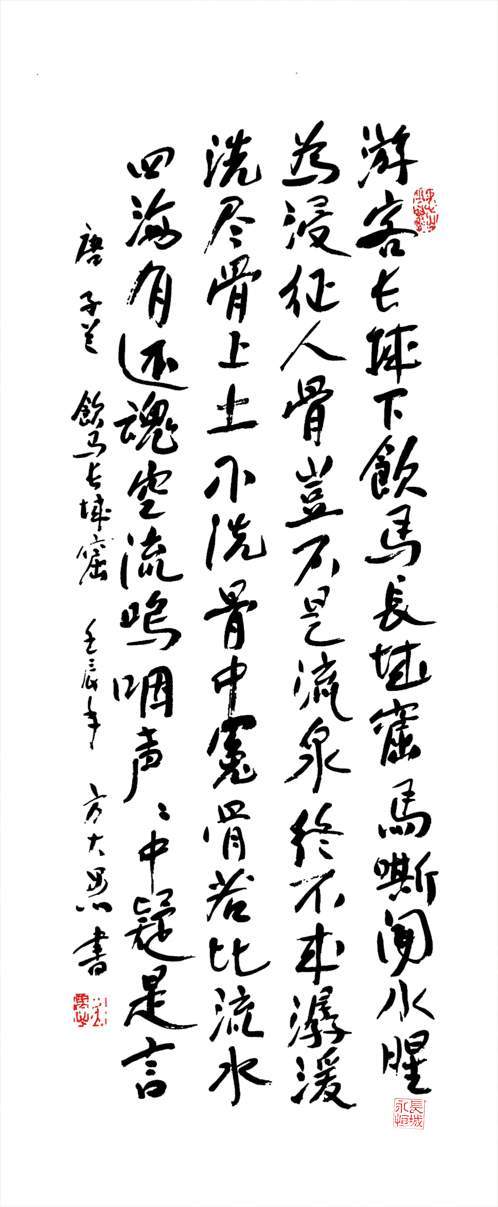 游客长城下飲馬長城窟馬嘶闻水腥
為浸征人骨豈不是流泉终不成潺湲
洗尽骨上土不洗骨中冤骨若比流水
四海有还魂空流嗚咽声〻中疑是言
唐 子兰 飲马长城窟 壬辰年 方大 書
長城永恒